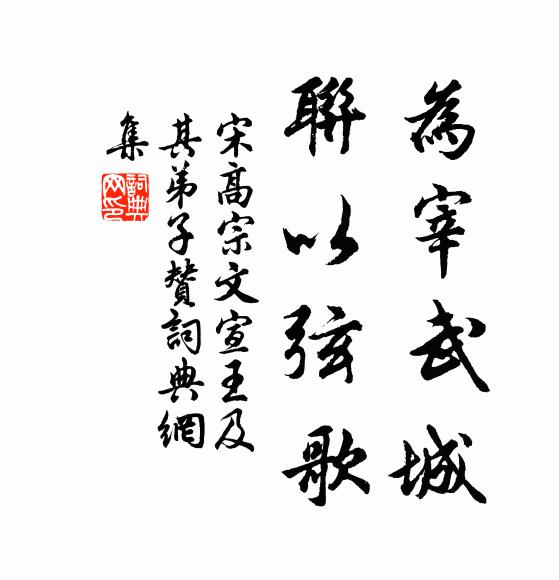 為宰武城
聯以弦歌
宋高宗文宣王及
其弟子贊詞典網
集
詞典网印